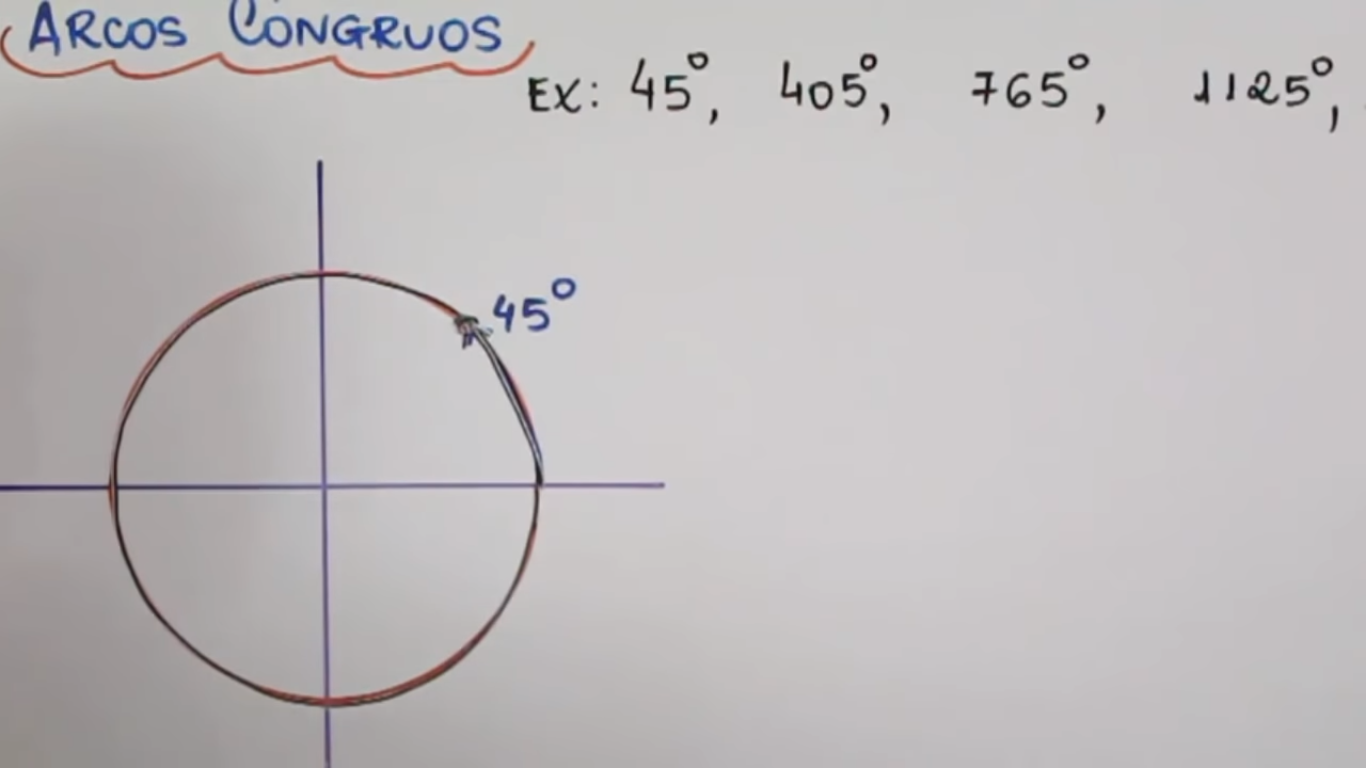 ARCOS CÔNGRUOS
EX: 45°, 405°, 765°, 1125°,
45°